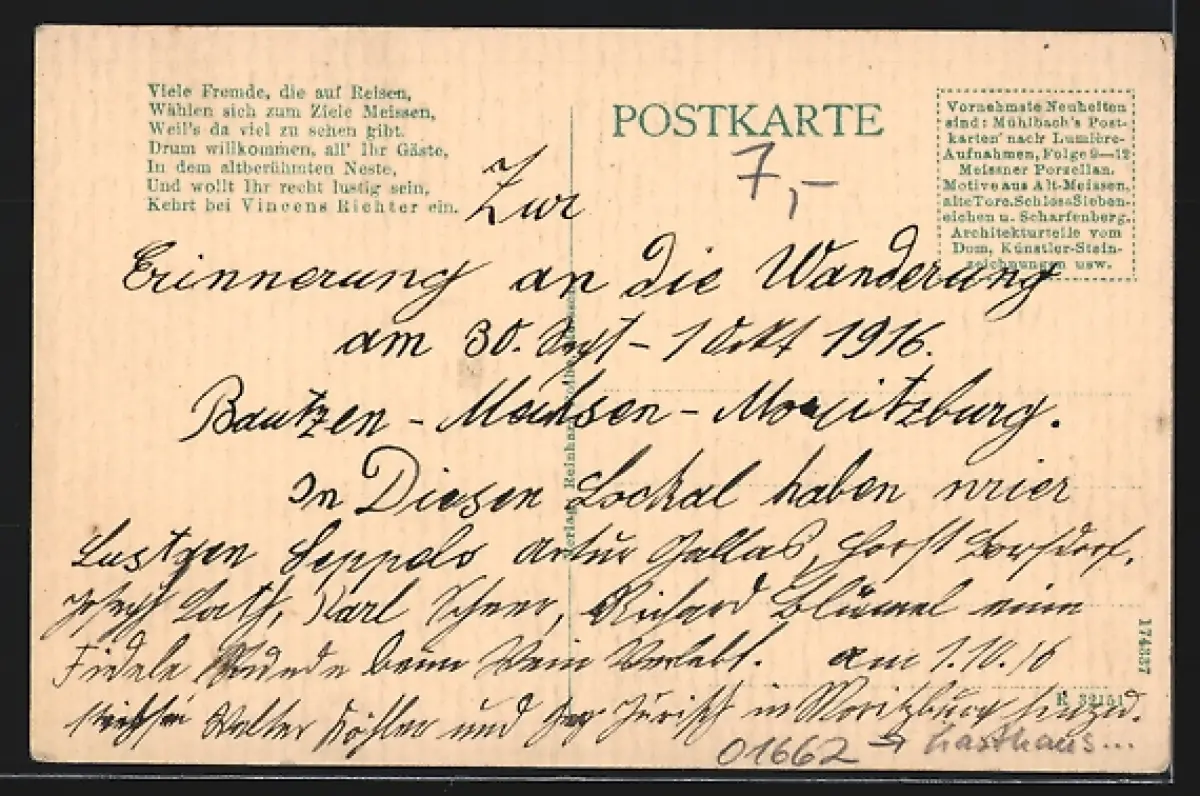 Viele Fremde, die auf Reisen,
Wählen sich zum Ziele Meissen,
Weil's da viel zu sehen gibt.
Drum willkommen, all' Ihr Gäste,
In dem altberühmten Neste,
Und wollt Ihr recht lustig sein,
Kehrt bei Vincens Richter ein.
POSTKARTE
Vornehmste Neuheiten
sind: Mühlbach's Post-
karten nach Lumière-
Aufnahmen, Folge 9—12
Meissner Porzellan.
Motive aus Alt-Meissen,
alte Tore. Schloss Sieben-
eichen u. Scharfenberg.
Architekturteile vom
Dom, Künstler-Stein-
zeichnungen usw.
7,-
Zur
Erinnerung an die Wanderung
am 30. Sept - 1 Okt 1916.
Bautzen - Meihsen - Moritzburg.
In Diesen Lockal haben wier
Lustgen Seppels Artur Gallas, Horst
Karl Richard Blümel eine
Fidele beim Wein Verlebt. am 1.10.16
Walter Köhler und in Moritzburg
Verlag Reinhard
174337
R 32151
01662 → Gasthaus...